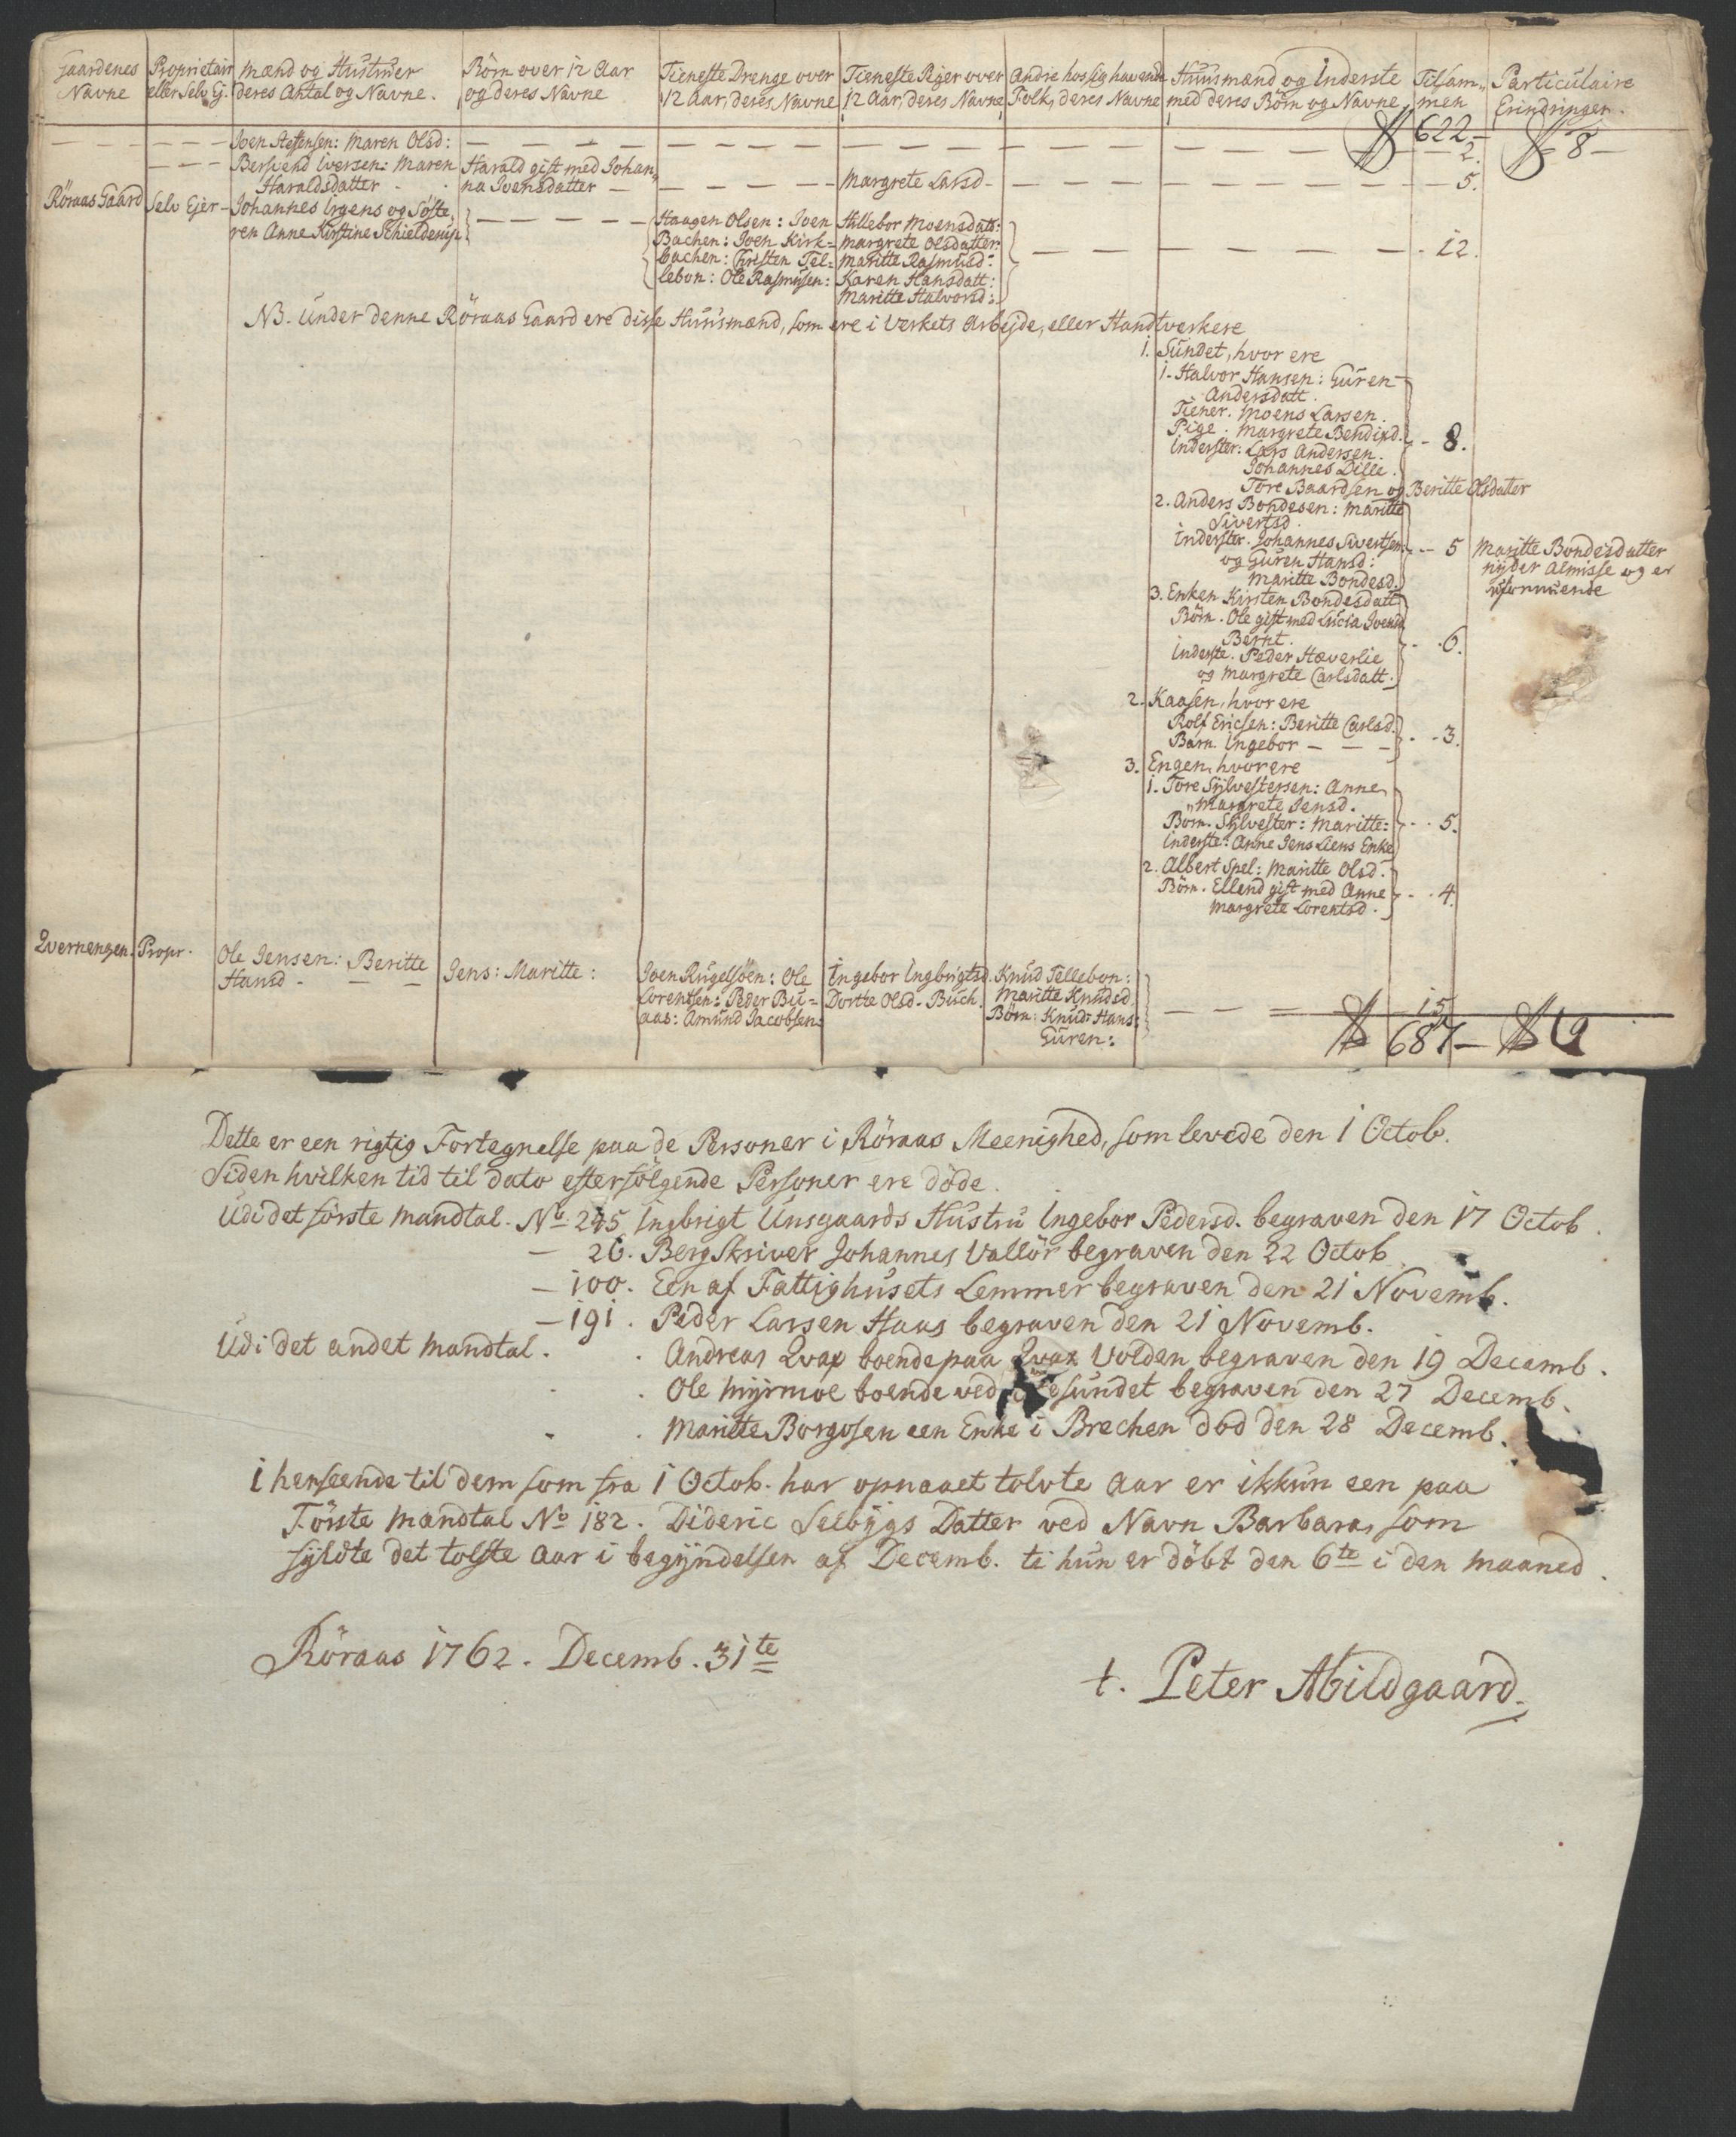 Gaardenes Navne | Proprietair eller Selv E. | Mænd og Hustruer deres Antal og Navne. | Börn over 12 Aar og deres Navne | Tieneste Drenge over 12 Aar, deres Navne | Tieneste Piger over 12 Aar, deres Navne | Andre hos sig havende Folk, deres Navne | Huusmænd og Inderste med deres Börn og Navne | Tilsammen | Particulaire Erindringer.
622 — 8 —
Joen Steffensen: Maren Olsd: — 2.
Bersvend Iversen: Maren Haraldsdatter | Harald gift med Johanna Ivensdatter — | Margrete Larsd — 5.
Röraas Gaard | Selv Ejer | Johannes Irgens og Söste-
ren Anne Kirstine Schielderup
Haagen Olsen: Joen
Bachen: Joen Kirk=
bachen: Christen Tel=
lebon: Ole Rasmusen:
Hillebor Moensdatt:
Margrete Olsdatter:
Maritte Rasmusd:
Karen Hansdatt:
Maritte Halvorsd:
12.
NB. Under denne Röraas Gaard ere disse Huusmænd, som ere i Verkets Arbejde, eller Handtverkere
1. Sundet, hvor ere
1. Halvor Hansen: Guren
Andersdatt.
Tiener. Moens Larsen.
Pige. Margrete Bendixd.
Inderster: Lars Andersen.
Johannes Dille.
Tore Baardsen og Beritte Olsdatter
8.
2. Anders Bondesen: Maritte
Sivertsd.
Inderster. Johannes Sivertsen
og Guren Hansd:
Maritte Bondesd.
5
Maritte Bondesdatter
nyder Almisse og er
uformuende
3. Enken Kirsten Bondesdatt.
Börn. Ole gift med Lucia Ivensd.
Bernt.
Inderste. Peder Hæverlie
og Margrete Carlsdatt.
6.
2. Kaasen, hvor ere
Rolf Ericsen: Beritte Carlsd.
Barn. Ingebor —
3.
3. Engen, hvor ere
1. Tore Sylvestersen: Anne
Margrete Jensd.
Börn. Sylvester: Maritte:
Inderste: Anne Jens Liens Enke
5.
2. Albert Spel: Maritte Olsd.
Börn. Ellend gift med Anne
Margrete Lorentsd.
4.
Qvernengen. | Propr. | Ole Jensen: Beritte
Hansd —
Jens: Maritte:
Joen Rugelsöen: Ole
Lorentsen: Peder Bu=
aas: Amund Jacobsen:
Ingebor Ingbrigtsd.
Dorthe Olsd. Buch.
Knud Tellebon:
Maritte Knudsd.
Börn: Knud: Hans:
Guren:
15
687 — 9
Dette er een rigtig Fortegnelse paa de Personer i Röraas Meenighed, som levede den 1 Octob.
Siden hvilken tid til dato efterfölgende Personer ere döde.
Udi det förste Mandtal. No 245 Ingbrigt Unsgaards Hustru Ingebor Pedersd. begraven den 17 Octob.
— 26. Bergskriver Johannes Vallör begraven den 22 Octob
— 100. Een af Fattighusets Lemmer begraven den 21 Novemb.
— 191. Peder Larsen Haas begraven den 21 Novemb.
Udi det andet Mandtal. Andreas Qvax boende paa Qvax Volden begraven den 19 Decemb.
Ole Myrmoe boende ved sundet begraven den 27 Decemb.
Maritte Borgosen een Enke i Brechen död den 28 Decemb.
I henseende til dem som fra 1 Octob. har opnaaet tolvte Aar er ikkun een paa
Förste Mandtal No 182. Dideric Selbygs Datter ved Navn Barbara, som
fyldte det tolfte Aar i begyndelsen af Decemb. ti hun er döbt den 6te i den Maaned.
Röraas 1762. Decemb. 31te
t. Peter Abildgaard.